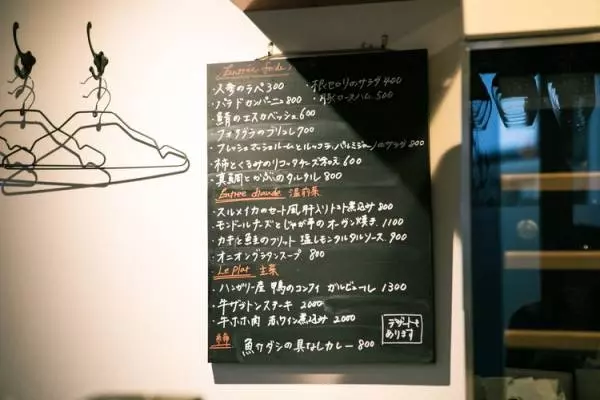 Entrée froide
・人参のラペ 300 ・根セロリのサラダ 400
・パテドカンパーニュ 800 ・豚ロースハム 500
・鯖のエスカベッシュ 600
・フォアグラのブリュレ 700
・フレッシュマッシュルームとルッコラ、パルミジャーノのサラダ 800
・柿とくるみのリコッタチーズ和え 600
・真鯛とかぶのタルタル 800
Entrée chaude 温前菜
・スルメイカのセート風 肝入りトマト煮込み 800
・モンドールチーズとじゃが芋のオーブン焼き 1100
・カキと鮭のフリット 塩レモンタルタルソース 900
・オニオングラタンスープ 800
Le plat 主菜
・ハンガリー産 鴨のコンフィ ガルビュール 1300
・牛ザブトンステーキ 2000
・牛ホホ肉 赤ワイン煮込み 2000
デザートも あります
魚ダシの具なしカレー 800